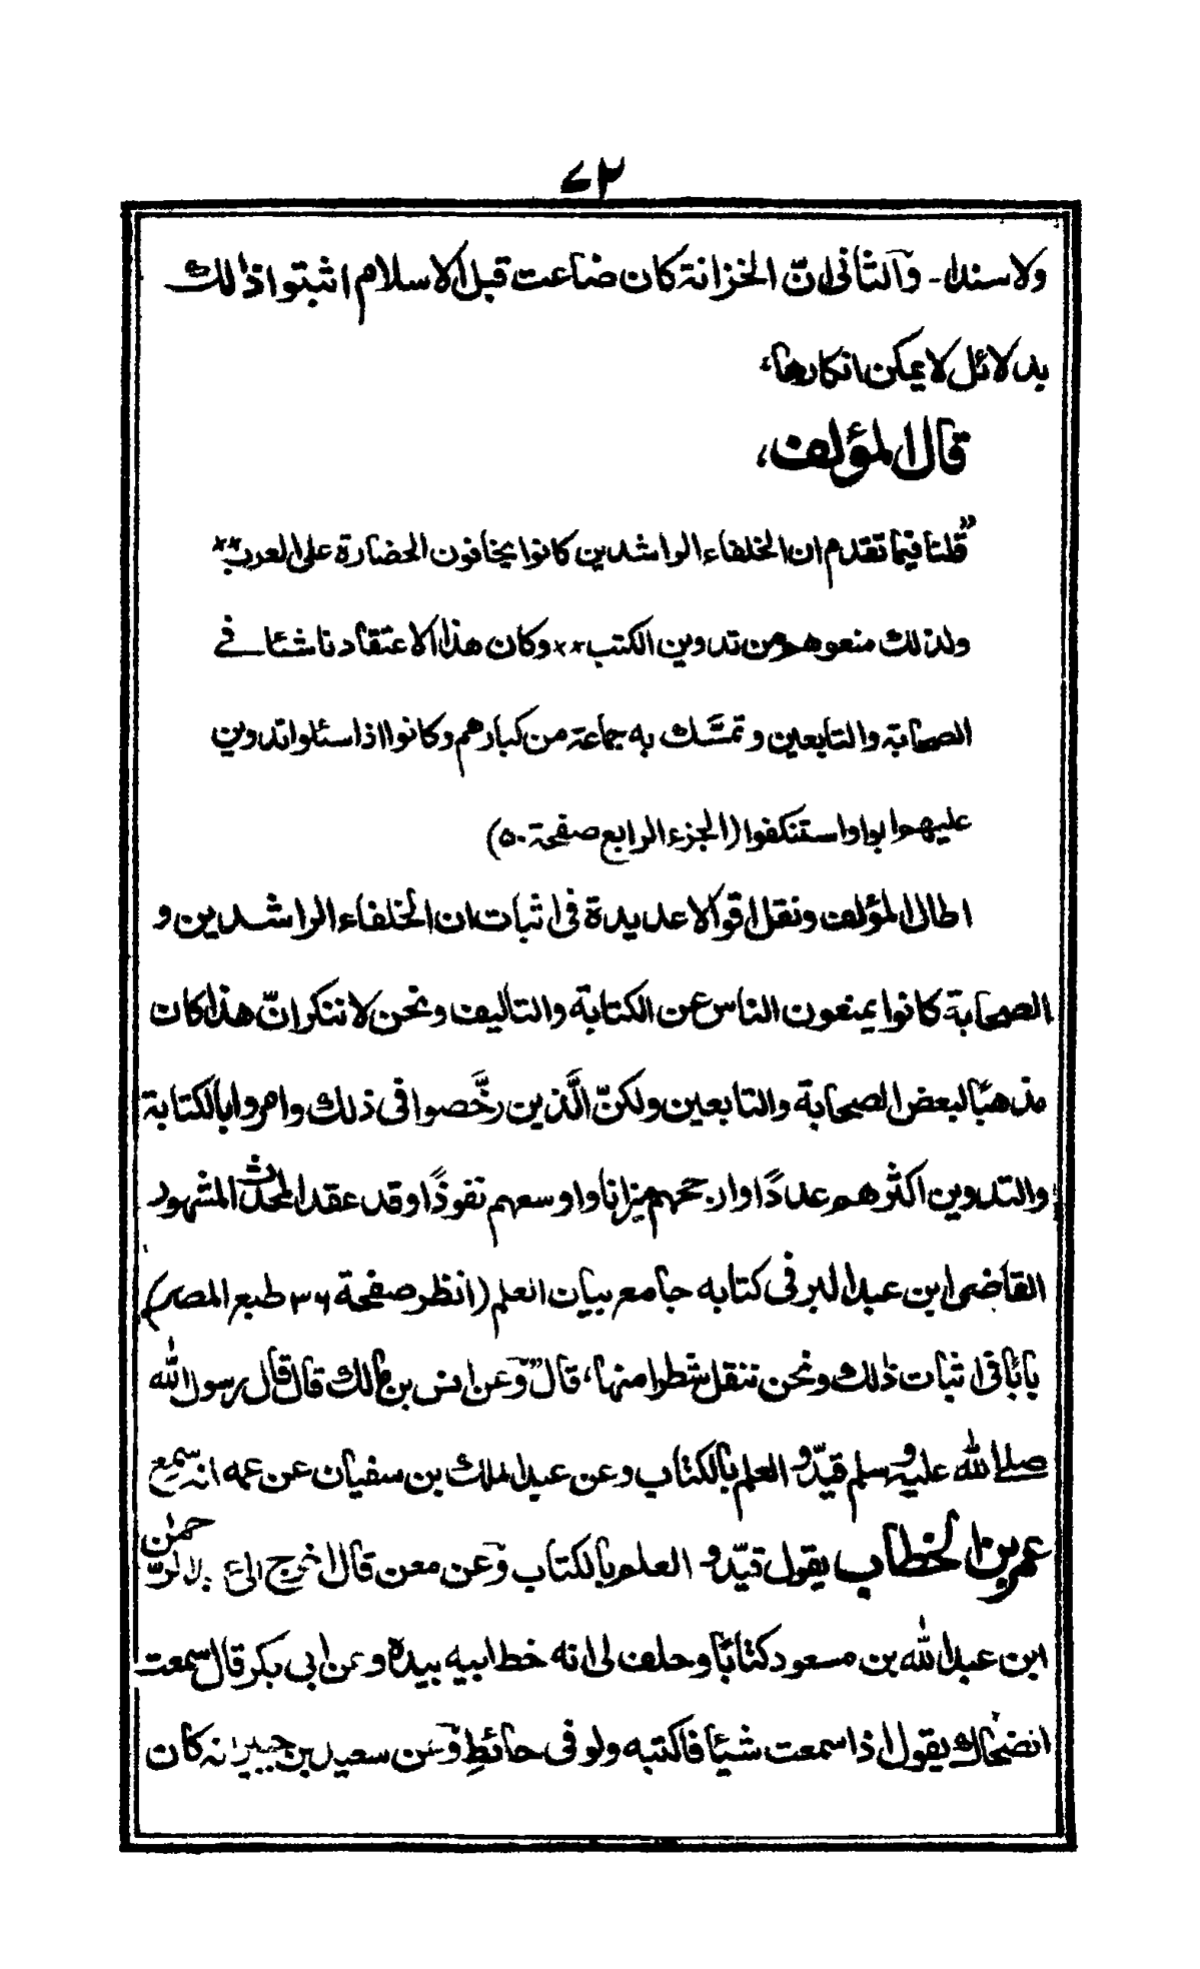 ٧٢
ولا سندا۔ والثانی ان الخزانة کان ضاعت قبل الاسلام اثبتوا ذالك
بدلائل لا یمکن انکارها،
قال المؤلف،
”قلنا فیما تقدم ان الخلفاء الراشدین کانوا یخافون الحضارة علی العرب××
ولذلك منعوهم من تدوین الکتب×× وکان هذا الاعتقاد ناشئا فے
الصحابة والتابعین وتمسّك به جماعة من کبارهم وکانوا اذا سئلوا تدوین
علیهم ابوا واستنکفوا (الجزء الرابع صفحة ۵۰)
اطال المؤلف ونقل اقوالا عدیدة فی اثبات ان الخلفاء الراشدین و
الصحابة کانوا یمنعون الناس عن الکتابة والتالیف ونحن لا ننکر انّ هذا کان
مذهبًا لبعض الصحابة والتابعین ولکنّ الَّذین رخَّصوا فی ذلك وامروا بالکتابة
والتدوین اکثرهم عددًا وارجحهم میزانا واوسعهم نفوذًا وقد عقد المحدث المشهور
القاضی ابن عبد البر فی کتابه جامع بیان العلم (انظر صفحة ۳۶ طبع المصر)
بابًا فی اثبات ذلك ونحن ننقل شطرا منها، قال ”وعن انس بن مالك قال قال رسول الله
صلے الله علیه وسلم قیّدو العلم بالکتاب وعن عبد الملك بن سفیان عن عمه انه سمع
عمر بن الخطاب یقول قیّدو العلم بالکتاب وعن معن قال اخرج الی عبد الرحمن
ابن عبد الله بن مسعود کتابًا وحلف لی انه خط ابیه بیده وعن ابی بکر قال سمعت
الضحاك یقول اذا سمعت شیئا فاکتبه ولو فی حائطٍ وعن سعید بن جبیر انه کان